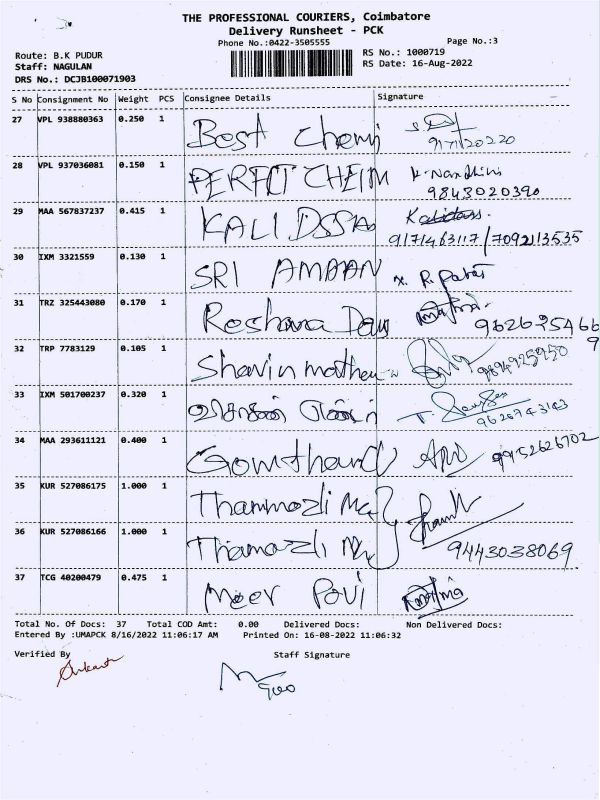 THE PROFESSIONAL COURIERS, Coimbatore
Delivery Runsheet - PCK
Phone No.:0422-3505555
Page No.:3
Route: B.K PUDUR
RS No.: 1000719
Staff: NAGULAN
RS Date: 16-Aug-2022
DRS No.: DCJB100071903
S No Consignment No Weight PCS Consignee Details Signature
27 VPL 938880363 0.250 1 Best Chemi
28 VPL 937036081 0.150 1 PERFCT CHEIM K. Nandhini
9843020390
29 MAA 567837237 0.415 1 KALIDSSA Kalidass.
9171463117/7092113535
30 IXM 3321559 0.130 1 SRI AMAAN
31 TRZ 325443080 0.170 1 Roshana
32 TRP 7783129 0.105 1 Shavin mathew
33 IXM 501700237 0.320 1
34 MAA 293611121 0.400 1 9952626702
35 KUR 527086175 1.000 1 Thanmozli
36 KUR 527086166 1.000 1 Thiamozli
9443038069
37 TCG 40200479 0.475 1 Meer Povi
Total No. Of Docs: 37 Total COD Amt: 0.00 Delivered Docs: Non Delivered Docs:
Entered By :UMAPCK 8/16/2022 11:06:17 AM Printed On: 16-08-2022 11:06:32
Verified By Staff Signature